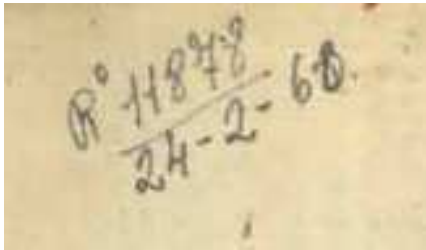 Rº 11878
24-2-60.